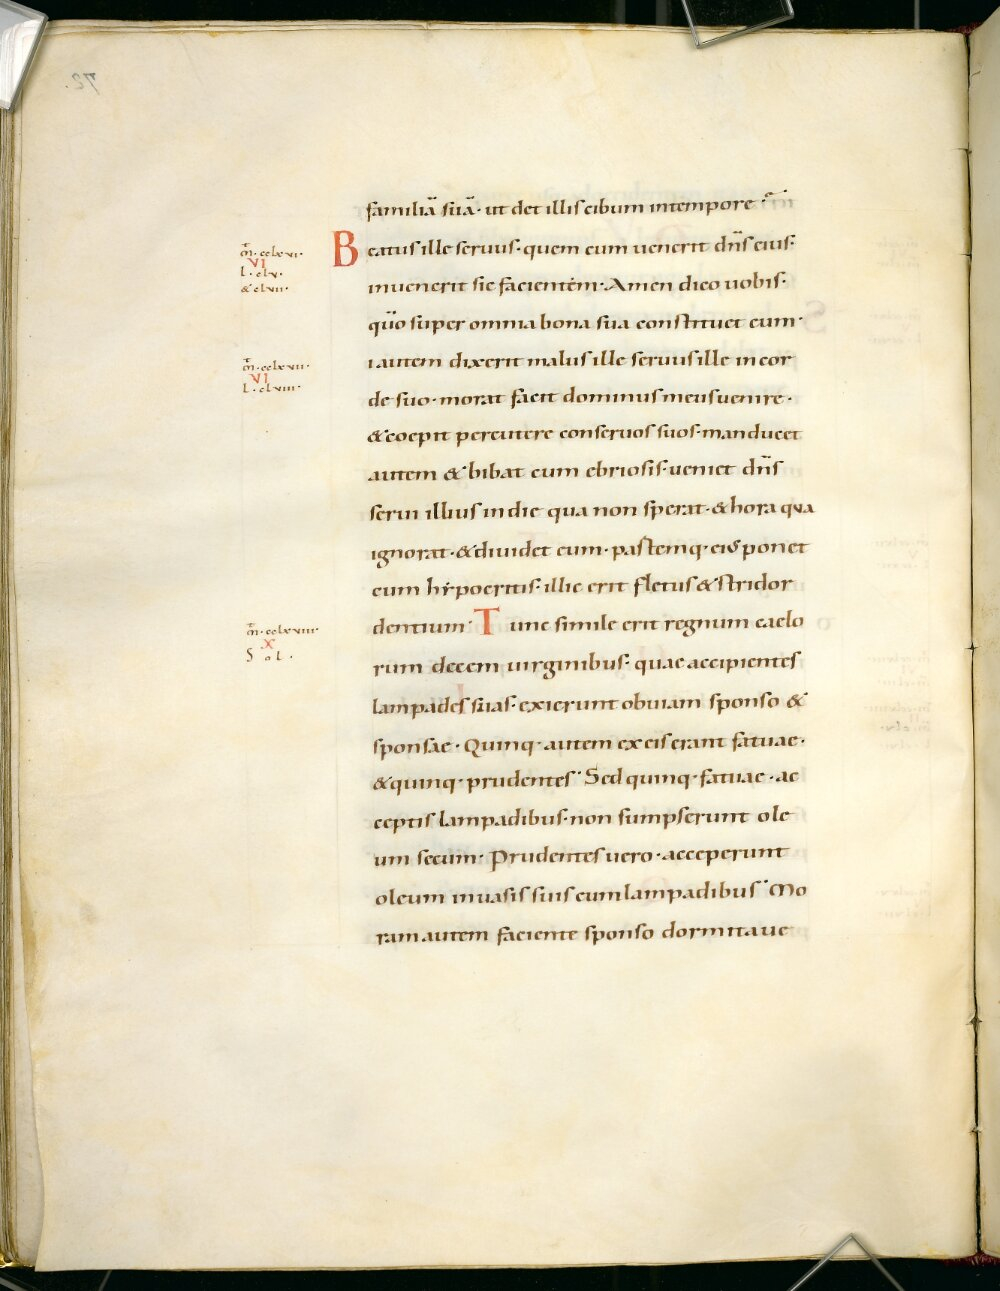 familiā suā · ut det illis cibum intempore
Beatus ille seruus · quem cum uenerit dn̄s eius ·
inuenerit sic facientem · Amen dico uobis ·
quō super omnia bona sua constituet eum ·
i autem dixerit malus ille seruus ille in cor
de suo · moram facit dominus meus uenire ·
& coepit percutere conseruos suos · manducet
autem & bibat cum ebriosis · ueniet dn̄s
serui illius in die qua non sperat · & hora qua
ignorat · & diuidet eum · partemq · eius ponet
cum hypocritis · illic erit fletus & stridor
dentium · Tunc simile erit regnum caelo
rum decem uirginibus · quae accipientes
lampades suas · exierunt obuiam sponso &
sponsae · Quinq · autem ex eis erant fatuae ·
& quinq · prudentes · Sed quinq · fatuae · ac
ceptis lampadibus · non sumpserunt ole
um secum · Prudentes uero · acceperunt
oleum inuasis suis cum lampadibus · Mo
ram autem faciente sponso dormitaue
m̄ · cclxvi ·
VI
L · clv ·
& clvii ·
m̄ · cclxvii ·
VI
L · clviii ·
m̄ · cclxviii ·
X
Sol ·
72.